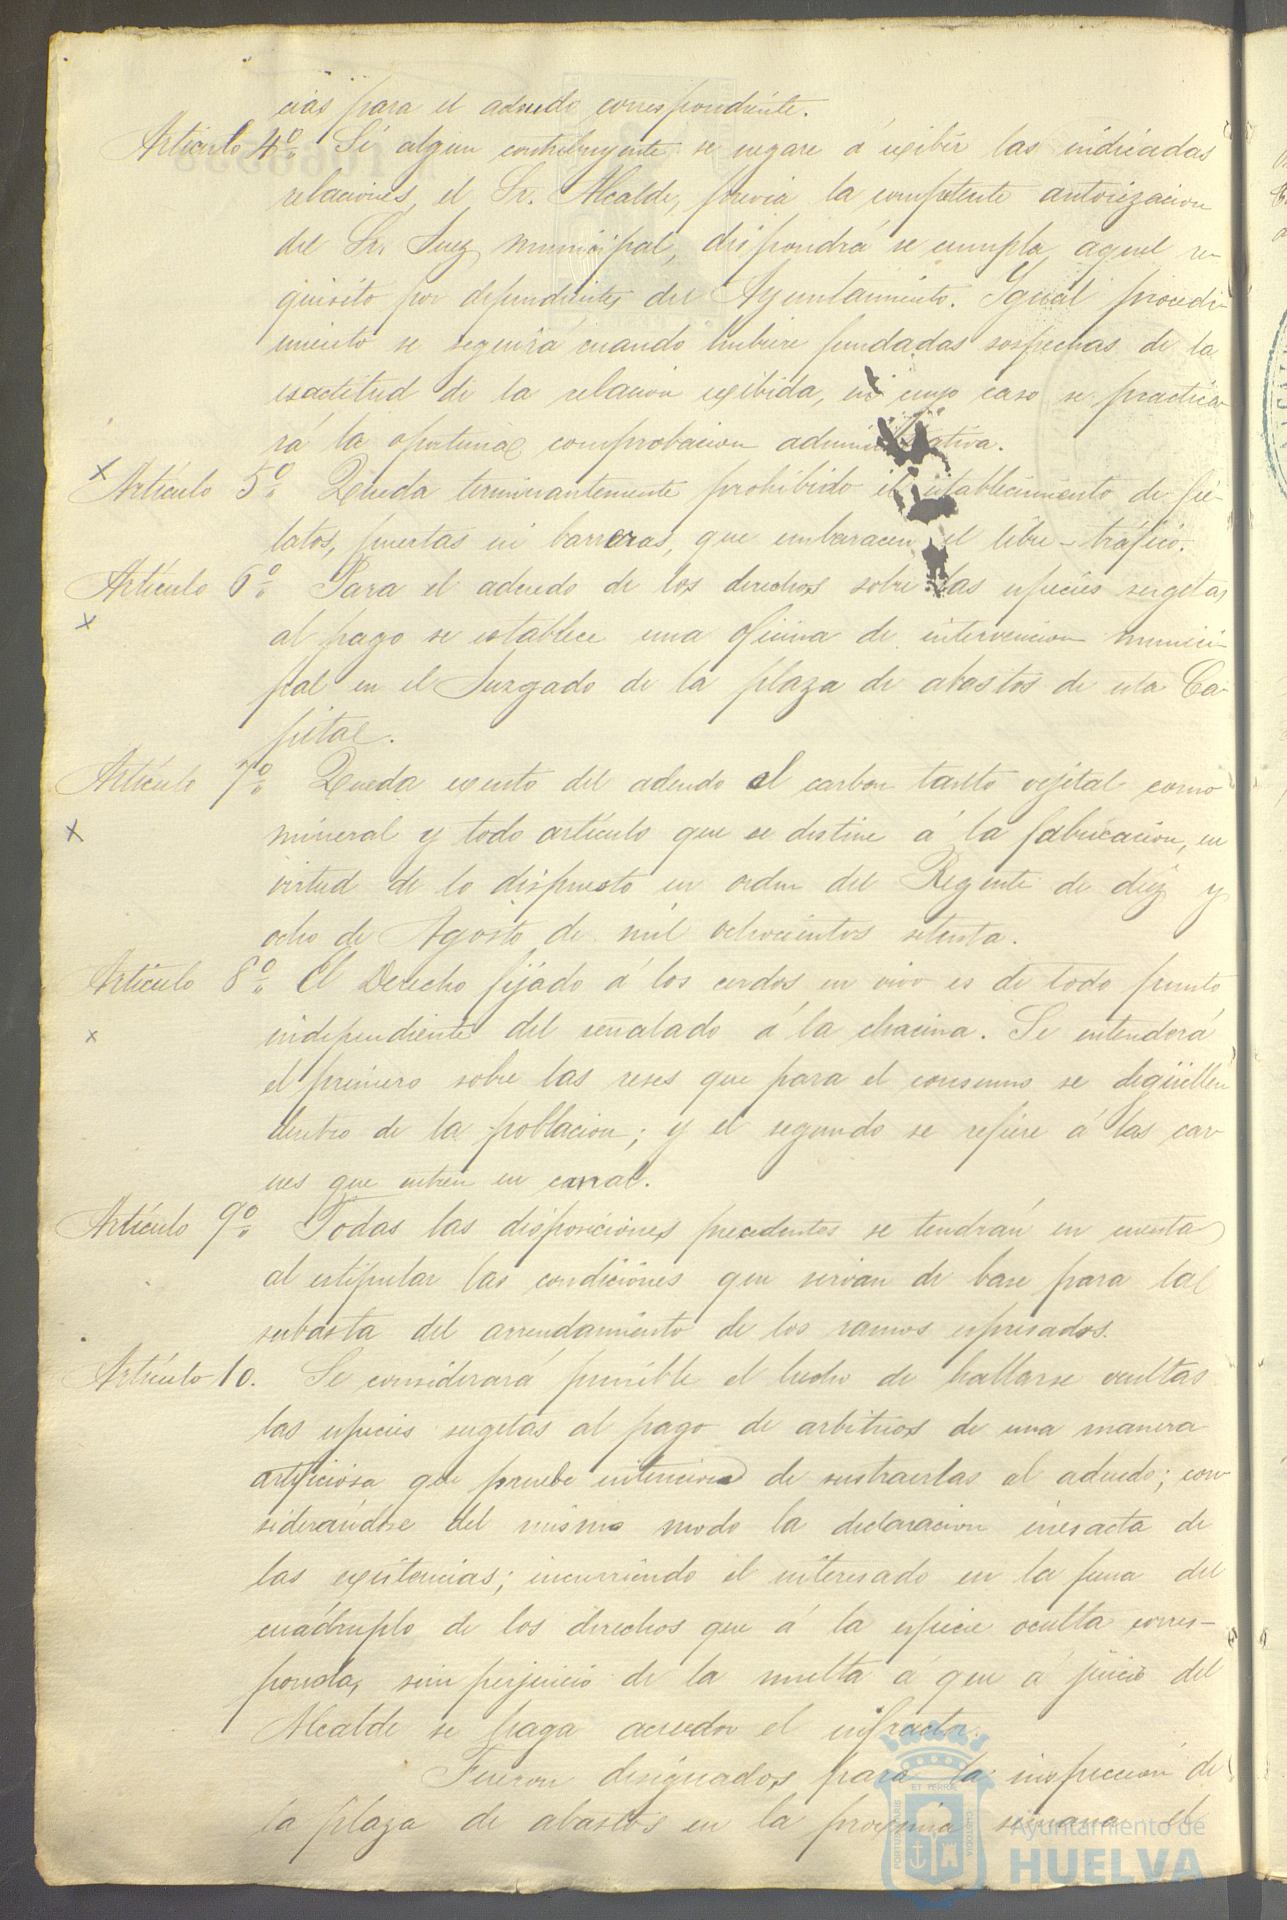 cias para el adeudo correspondiente.
Artículo 4º. Si algun contribuyente se negare á exibir las indicadas
relaciones, el Sr. Alcalde, previa la competente autorizacion
del Sr. Juez municipal, dispondrá se cumpla aquel re-
quisito por dependientes del Ayuntamiento. Igual procedi-
miento se seguirá cuando hubiere fundadas sospechas de la
esactitud de la relacion exibida, en cuyo caso se practica-
rá la oportuna comprobacion administrativa.
x Artículo 5º. Queda terminantemente prohibido el establecimiento de fie-
latos, puertas ni barreras, que embaracen el libre-tráfico.
Artículo 6º. Para el adeudo de los derechos sobre las especies sugetas
x al pago se establece una oficina de intervencion munici-
pal en el Juzgado de la plaza de abastos de esta Ca-
pital.
Artículo 7º. Queda exento del adeudo el carbon tanto vejital como
x mineral y todo artículo que se destine á la fabricacion, en
virtud de lo dispuesto en orden del Regente de diez y
ocho de Agosto de mil ochocientos setenta.
Artículo 8º. El Derecho fijado á los cerdos en vivo es de todo punto
x independiente del señalado á la chacina. Se entenderá
el primero sobre las reses que para el consumo se degüellen
dentro de la poblacion; y el segundo se refiere á las car-
nes que entren en canal.
Artículo 9º. Todas las disposiciones precedentes se tendrán en cuenta
al estipular las condiciones que sirvan de base para la
subasta del arrendamiento de los ramos espresados.
Artículo 10. Se considerará punible el hecho de hallarse ocultas
las especies sugetas al pago de arbitrios de una manera
artificiosa que pruebe intencion de sustraerlas al adeudo; con-
siderándose del mismo modo la declaracion inesacta de
las existencias; incurriendo el interesado en la pena del
cuádruplo de los derechos que á la especie oculta corres-
ponda, sin perjuicio de la multa á que á juicio del
Alcalde se haga acreedor el infractor.
Fueron designados para la inspeccion de
la plaza de abastos en la proxima semana el
Ayuntamiento de
HUELVA